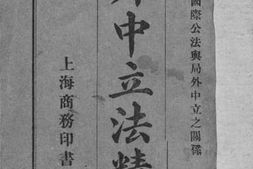 國際公法與局外中立之關係
外中立法精
上海商務印書